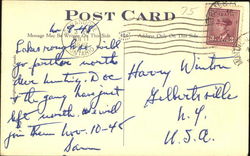 POST CARD
Message May Be Written On This Side
Address Only On This Side
75
6-9-48
Lakes rough so will
go further north
deer hunting. Doc &
the gang have just
left north. We will
join them Nov. 10-48
Sam
Harry Winton
Gilbertsville
N.Y.
U.S.A.
3 3